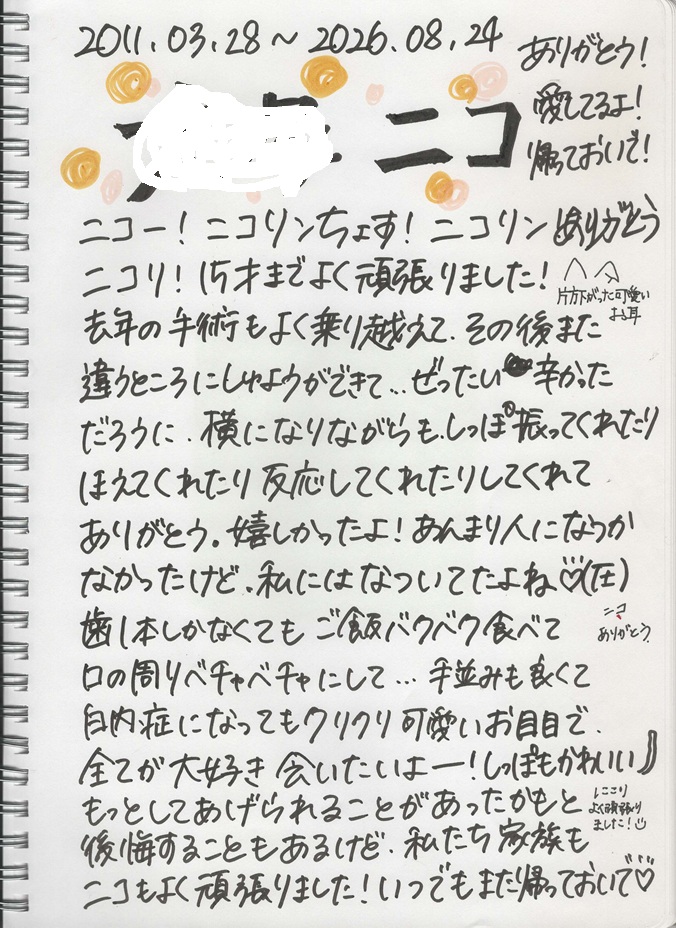 2011.03.28～2026.08.24
ありがとう！
愛してるよ！
帰っておいで！
ニコ
ニコー！ニコリンちょす！ニコリンありがとう
ニコリ！15才までよく頑張りました！
片方下がった可愛い
お耳
去年の手術もよく乗り越えて、その後また
違うところにしゅようができて…ぜったい辛かった
だろうに、横になりながらも、しっぽ振ってくれたり
ほえてくれたり反応してくれたりしてくれて
ありがとう。嬉しかったよ！あんまり人になつか
なかったけど、私にはなついてたよね♡(圧)
歯1本しかなくてもご飯バクバク食べて
ニコ
ありがとう。
口の周りベチャベチャにして…手並みも良くて
白内症になってもクリクリ可愛いお目目で、
全てが大好き会いたいよー！しっぽもかわいい
もっとしてあげられることがあったかもと
にこり
よく頑張り
ました！
後悔することもあるけど、私たち家族も
ニコもよく頑張りました！いつでもまた帰っておいで♡